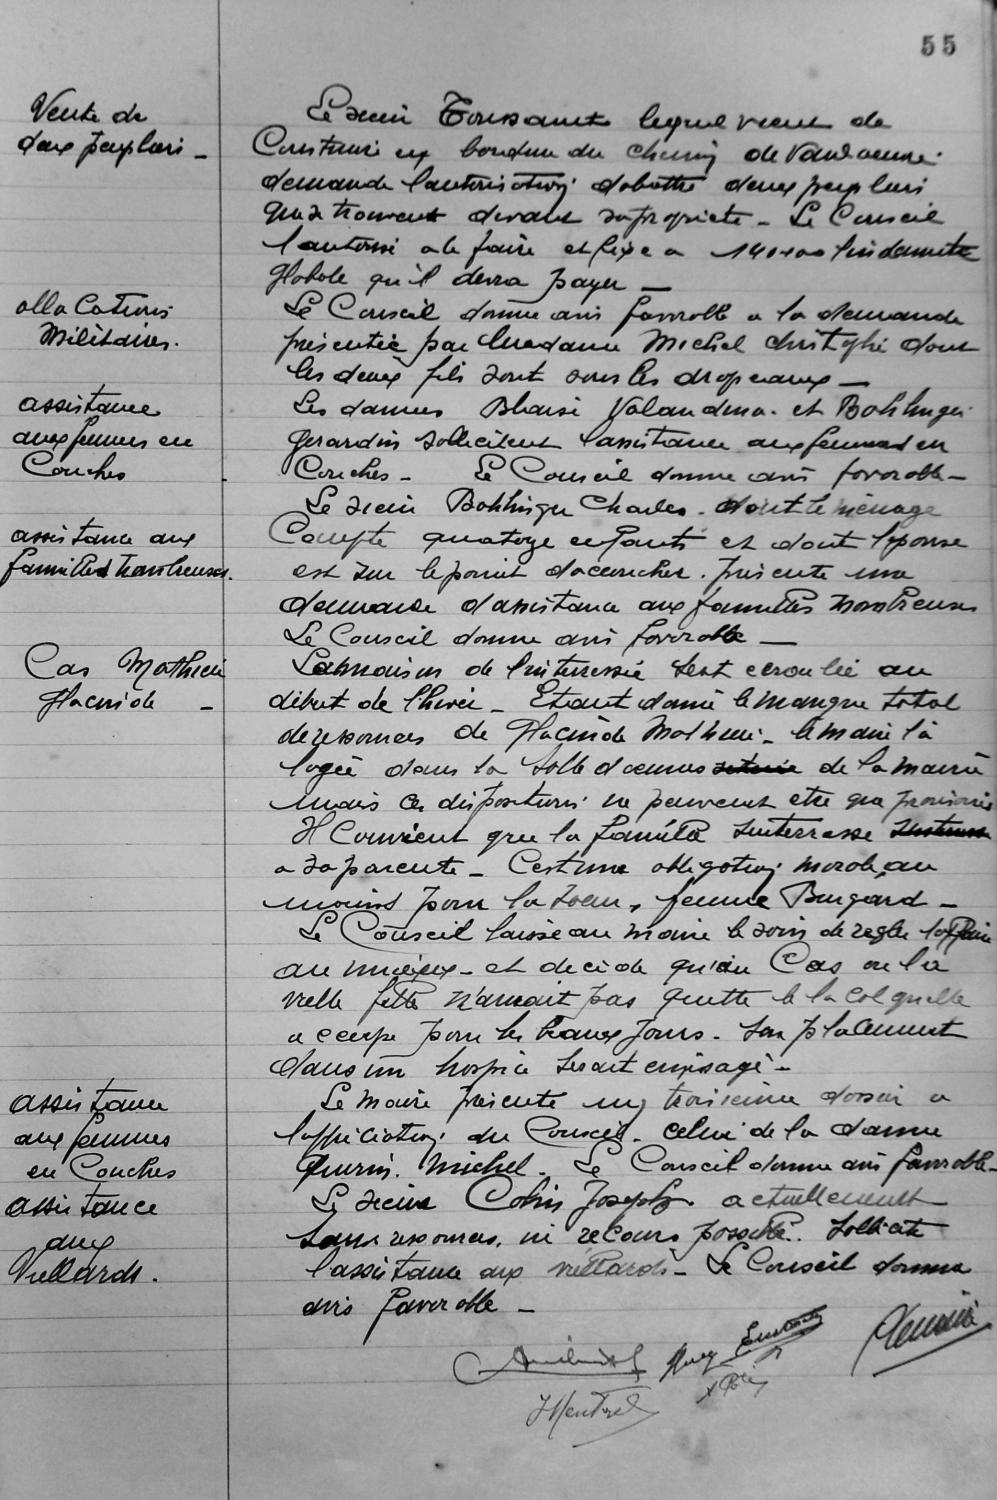 55
Vente de
deux peupliers -
Le sieur Toussaint lequel vient de
Construire en bordure du chemin de
demande l'autorisation d'abattre deux peupliers
qui se trouvent devant sa propriete - Le Conseil
l'autorise a le faire et fixe a l'indemnite
globale qu'il devra payer -
allocations
Militaires.
Le Conseil donne avis favorable a la demande
présentée par Madame Michel Christophe dont
les deux fils sont sous les drapeaux -
assistance
aux femmes en
Couches
Les dames Blaise Valandina et Bohlinger
Gerardin sollicitent l'assistance aux femmes en
Couches - Le Conseil donne avis favorable -
assistance aux
familles nombreuses.
Le sieur Bohlinger Charles. dont le ménage
Compte quatorze enfants et dont l'epouse
est sur le point d'accoucher. présente une
demande d'assistance aux familles nombreuses
Le Conseil donne avis favorable -
Cas Mathieu
Placide -
La maison de l'interressé s'est ecroulée au
début de l'hiver - Etant donné le manque total
de ressources de Placide Mathieu - le maire l'a
logé dans la Salle d'armes de la mairie
mais ces dispositions ne peuvent etre que provisoires
Il Convient que la famille s'interresse
a sa parente - C'est une obligation morale, au
moins pour la soeur, femme Burgard -
Le Conseil laisse au maire le soin de regler l'affaire
au mieux - et decide qu'au Cas ou la
vielle fille n'aurait pas quitté le local qu'elle
occupe pour les beaux jours. Son placement
dans un hospice serait envisagé -
assistance
aux femmes
en Couches
Le maire présente un troisieme dossier a
l'appréciation du Conseil. celui de la dame
Quirin. Michel. Le Conseil donne avis favorable -
assistance
aux
Viellards.
Le sieur Colin Joseph actuellement
sans ressources, ni recours possible. Sollicite
l'assistance aux viellards - Le Conseil donne
avis favorable -